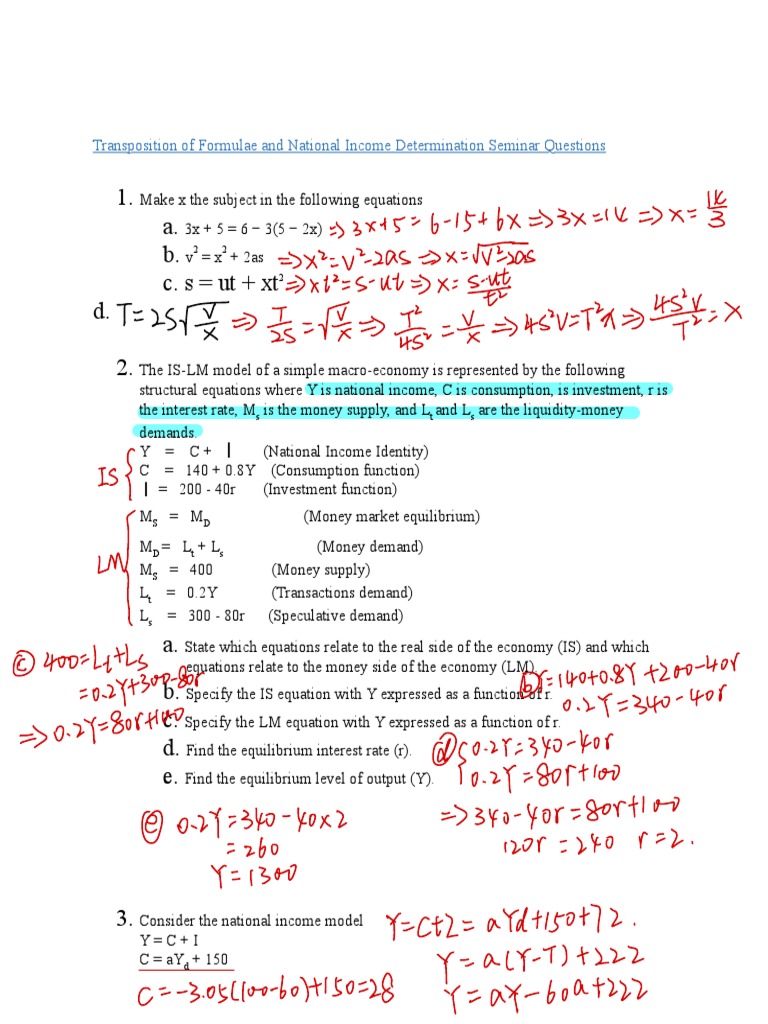 Transposition of Formulae and National Income Determination Seminar Questions
1. Make x the subject in the following equations
a. 3x + 5 = 6 – 3(5 – 2x) ⇒ 3x+5 = 6-15+6x ⇒ 3x=14 ⇒ x= 14/3
b. v² = x² + 2as ⇒ x²=v²-2as ⇒ x=√v²-2as
c. s = ut + xt² ⇒ xt²=s-ut ⇒ x= s-ut/t²
d. T=2S√V/x ⇒ T/2S = √V/x ⇒ T²/4S² = V/x ⇒ 4S²V=T²x ⇒ 4S²V/T² = x
2. The IS-LM model of a simple macro-economy is represented by the following
structural equations where Y is national income, C is consumption, is investment, r is
the interest rate, Mₛ is the money supply, and Lₜ and Lₛ are the liquidity-money
demands.
Y = C + I (National Income Identity)
IS { C = 140 + 0.8Y (Consumption function)
I = 200 - 40r (Investment function)
Mₛ = M_D (Money market equilibrium)
LM { M_D = Lₜ + Lₛ (Money demand)
Mₛ = 400 (Money supply)
Lₜ = 0.2Y (Transactions demand)
Lₛ = 300 - 80r (Speculative demand)
a. State which equations relate to the real side of the economy (IS) and which
equations relate to the money side of the economy (LM).
b. Specify the IS equation with Y expressed as a function of r.
c. Specify the LM equation with Y expressed as a function of r.
d. Find the equilibrium interest rate (r).
e. Find the equilibrium level of output (Y).
ⓒ 400=Lt+Ls
=0.2Y+300-80r
⇒ 0.2Y=80r+100
ⓑ =140+0.8Y+200-40r
0.2Y=340-40r
ⓓ { 0.2Y=340-40r
0.2Y=80r+100
⇒ 340-40r=80r+100
120r=240 r=2.
ⓔ 0.2Y=340-40×2
=260
Y=1300
3. Consider the national income model
Y = C + I
C = aY_d + 150
C=-3.05(100-60)+150=28
Y=C+2= aYd+150+72.
Y=a(Y-T)+222
Y=aY-60a+222